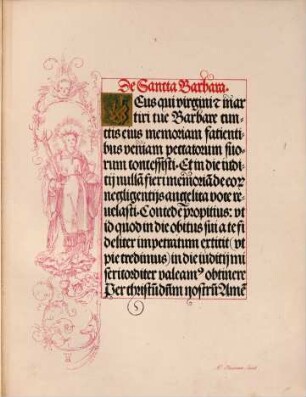 De Sancta Barbara.
DEus qui virgini ⁊ mar
tiri tue Barbare cun
ctis eius memoriam facienti
bus veniam peccatorum suo
rum concessisti. Et in die iudi
tij nullā fieri memoriā de eoꝝ
negligentijs angelica voce re
uelasti. Concede propitius: vt
id quod in die obitus sui a te fi
deliter impetratum extitit (vt
pie credimus) in die iuditij mi
sericorditer valeamꝰ obtinere
Per christū dūm nostrū Amē